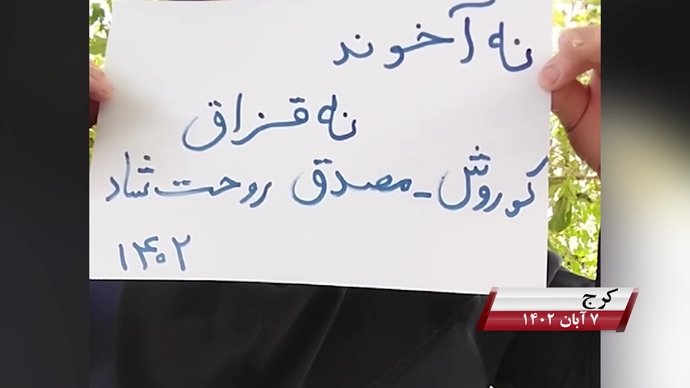 نه آخوند
نه قزاق
کوروش - مصدق روحت شاد
۱۴۰۲
کرج
۷ آبان ۱۴۰۲